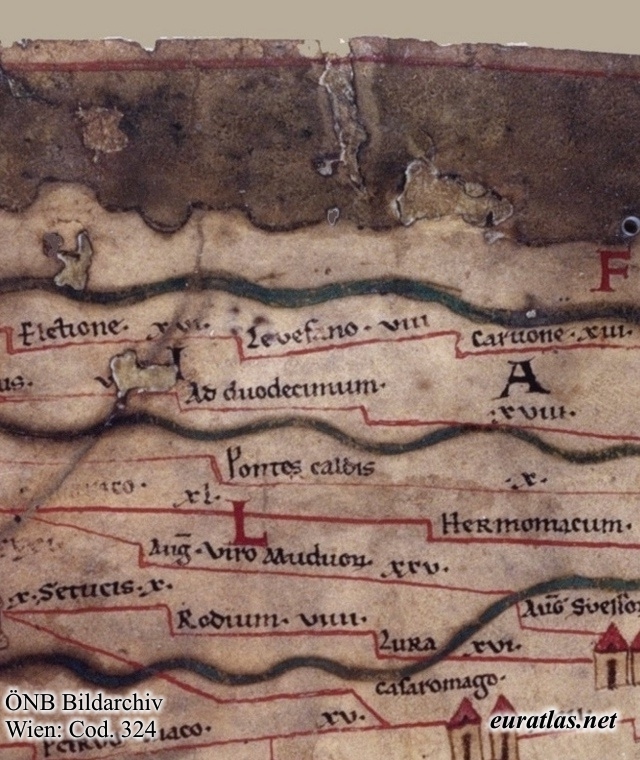 F
Fletione · xvi.
Levefano · viii
Caruone · xiii.
us.
Ad duodecimum.
A
xviii.
Pontes caldis
.x.
xl.
L
Hermomacum.
Aug̅ · viro Muduorū
xxv.
.x. Setucis .x.
Rodium · viiii.
Aug̅ Suesſor
Lura xvi.
caſaromago·
xv.
ÖNB Bildarchiv
Wien: Cod. 324
euratlas.net